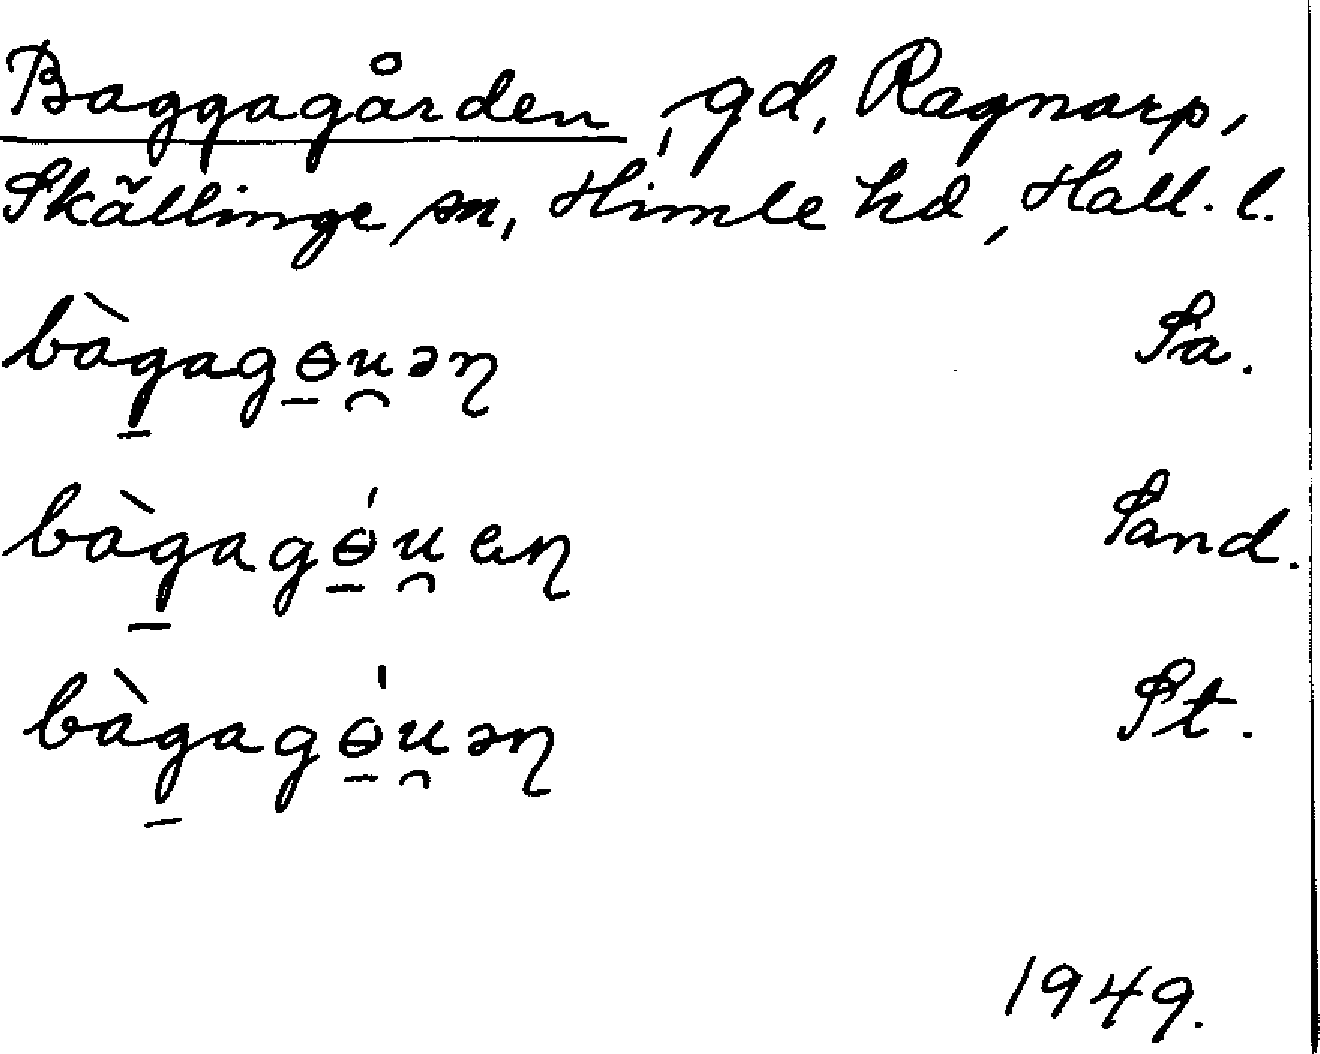 Baggagården, gd, Ragnarp,
Skällinge sn, Himle hd, Hall. l.
bàg̱agɵ̱u̯əɳ Sa.
bàg̱agɵ̱́u̯eɳ Sand.
bàg̱agɵ̱́u̯əɳ St.
1949.